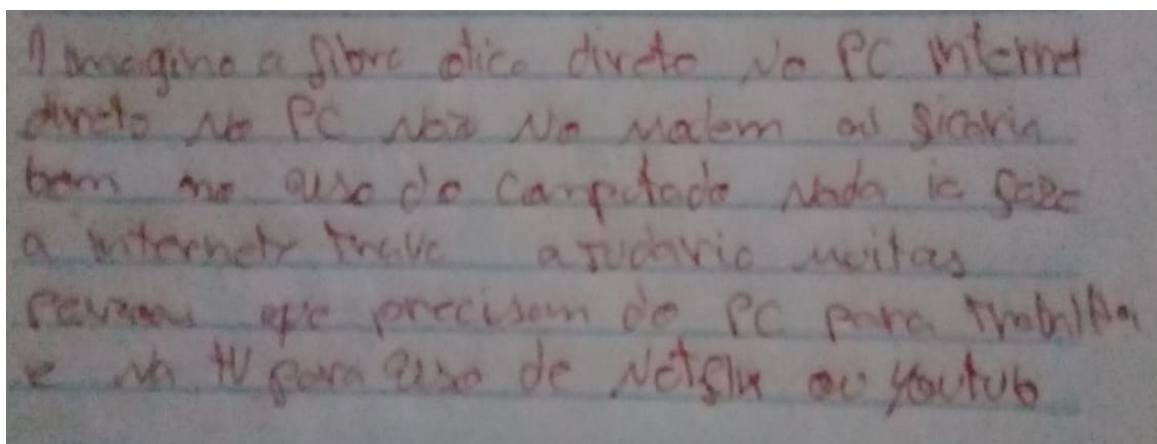 Imagina a fibra otica direto No PC internet
direto No PC Não No Modem ai ficaria
bom no auso do Computado Nada ia faze
a internet trava ajudaria muitas
pessoas que precisam do PC para trabalha
e Na tv para auso de Netflix ou youtub